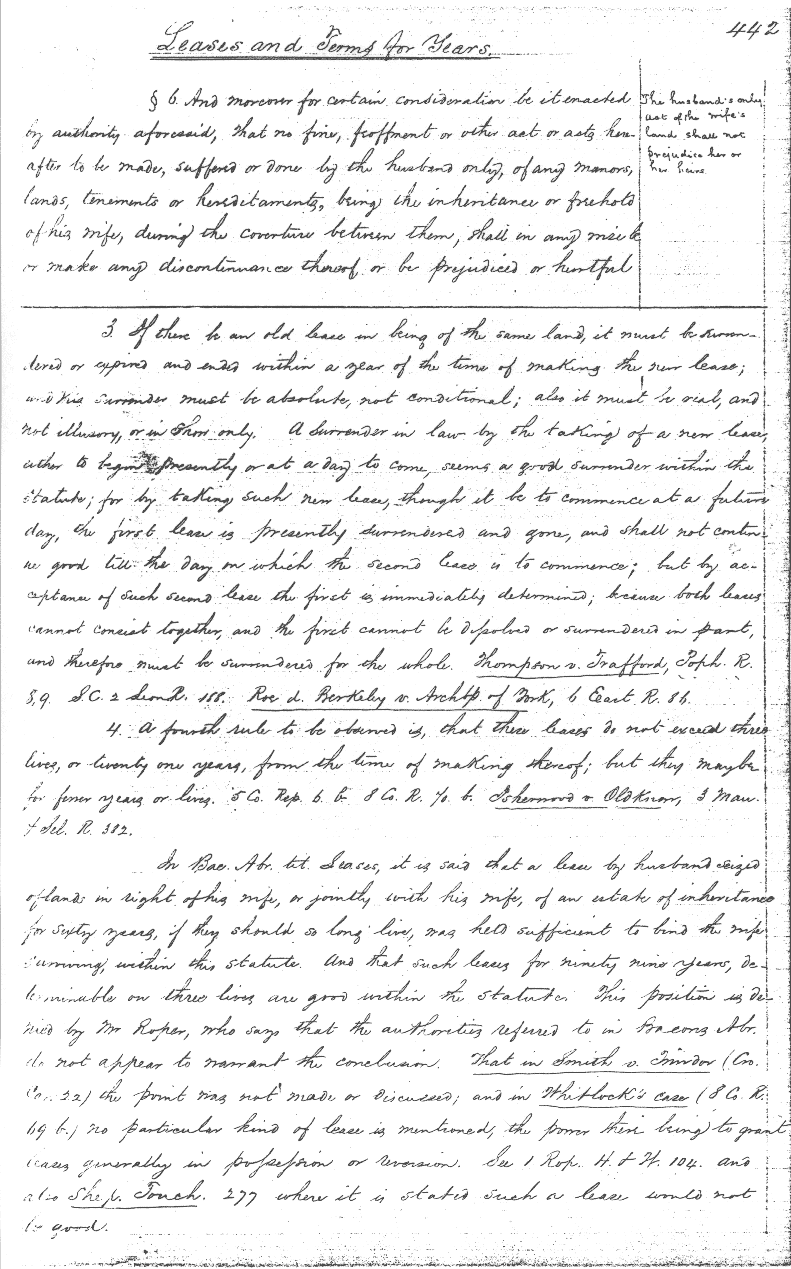 442
Leases and Terms for Years.
§ 6. And moreover for certain consideration be it enacted
by authority aforesaid, that no fine, feoffment or other act or acts here-
after to be made, suffered or done by the husband only, of any manors,
lands, tenements or hereditaments, being the inheritance or freehold
of his wife, during the coverture between them, shall in any wise be
or make any discontinuance thereof or be prejudiced or hurtful
The husband's only
act of the wife's
land shall not
prejudice her or
her heirs
3. If there be an old lease in being of the same land, it must be surren-
dered or expired and ended within a year of the time of making the new lease;
and this surrender must be absolute, not conditional; also it must be real, and
not illusory, or in show only. A surrender in law by the taking of a new lease,
either to begin presently or at a day to come, seems a good surrender within the
statute; for by taking such new lease, though it be to commence at a future
day, the first lease is presently surrendered and gone, and shall not contin-
ue good till the day on which the second lease is to commence; but by ac-
ceptance of such second lease the first is immediately determined; because both leases
cannot consist together, and the first cannot be dissolved or surrendered in part,
and therefore must be surrendered for the whole. Thompson v. Trafford, Poph. R.
8, 9. S.C. 2 Leon R. 188. Roe d. Berkeley v. Archbp. of York, 6 East R. 86.
4. A fourth rule to be observed is, that these leases do not exceed three
lives, or twenty one years, from the time of making thereof; but they may be
for fewer years or lives. 5 Co. Rep. 6 b. 8 Co. R. 70. b. Isherwood v. Oldknow, 3 Mau.
+ Sel. R. 382.
In Bac. Abr. tit. Leases, it is said that a lease by husband seized
of lands in right of his wife, or jointly with his wife, of an estate of inheritance
for sixty years, if they should so long live, was held sufficient to bind the wife
surviving, within this statute. And that such leases for ninety nine years, de-
terminable on three lives are good within the statute. This position is de-
nied by Mr Roper, who says that the authorities referred to in Bacons Abr.
do not appear to warrant the conclusion. That in Smith v. Trinder (Cro.
Car. 22) the point was not made or discussed; and in Whitlock's case (8 Co. R.
69 b.) no particular kind of lease is mentioned, the power there being to grant
leases generally in possession or reversion. See 1 Rop. H. + W. 104. and
also Shep. Touch. 277 where it is stated such a lease would not
be good.